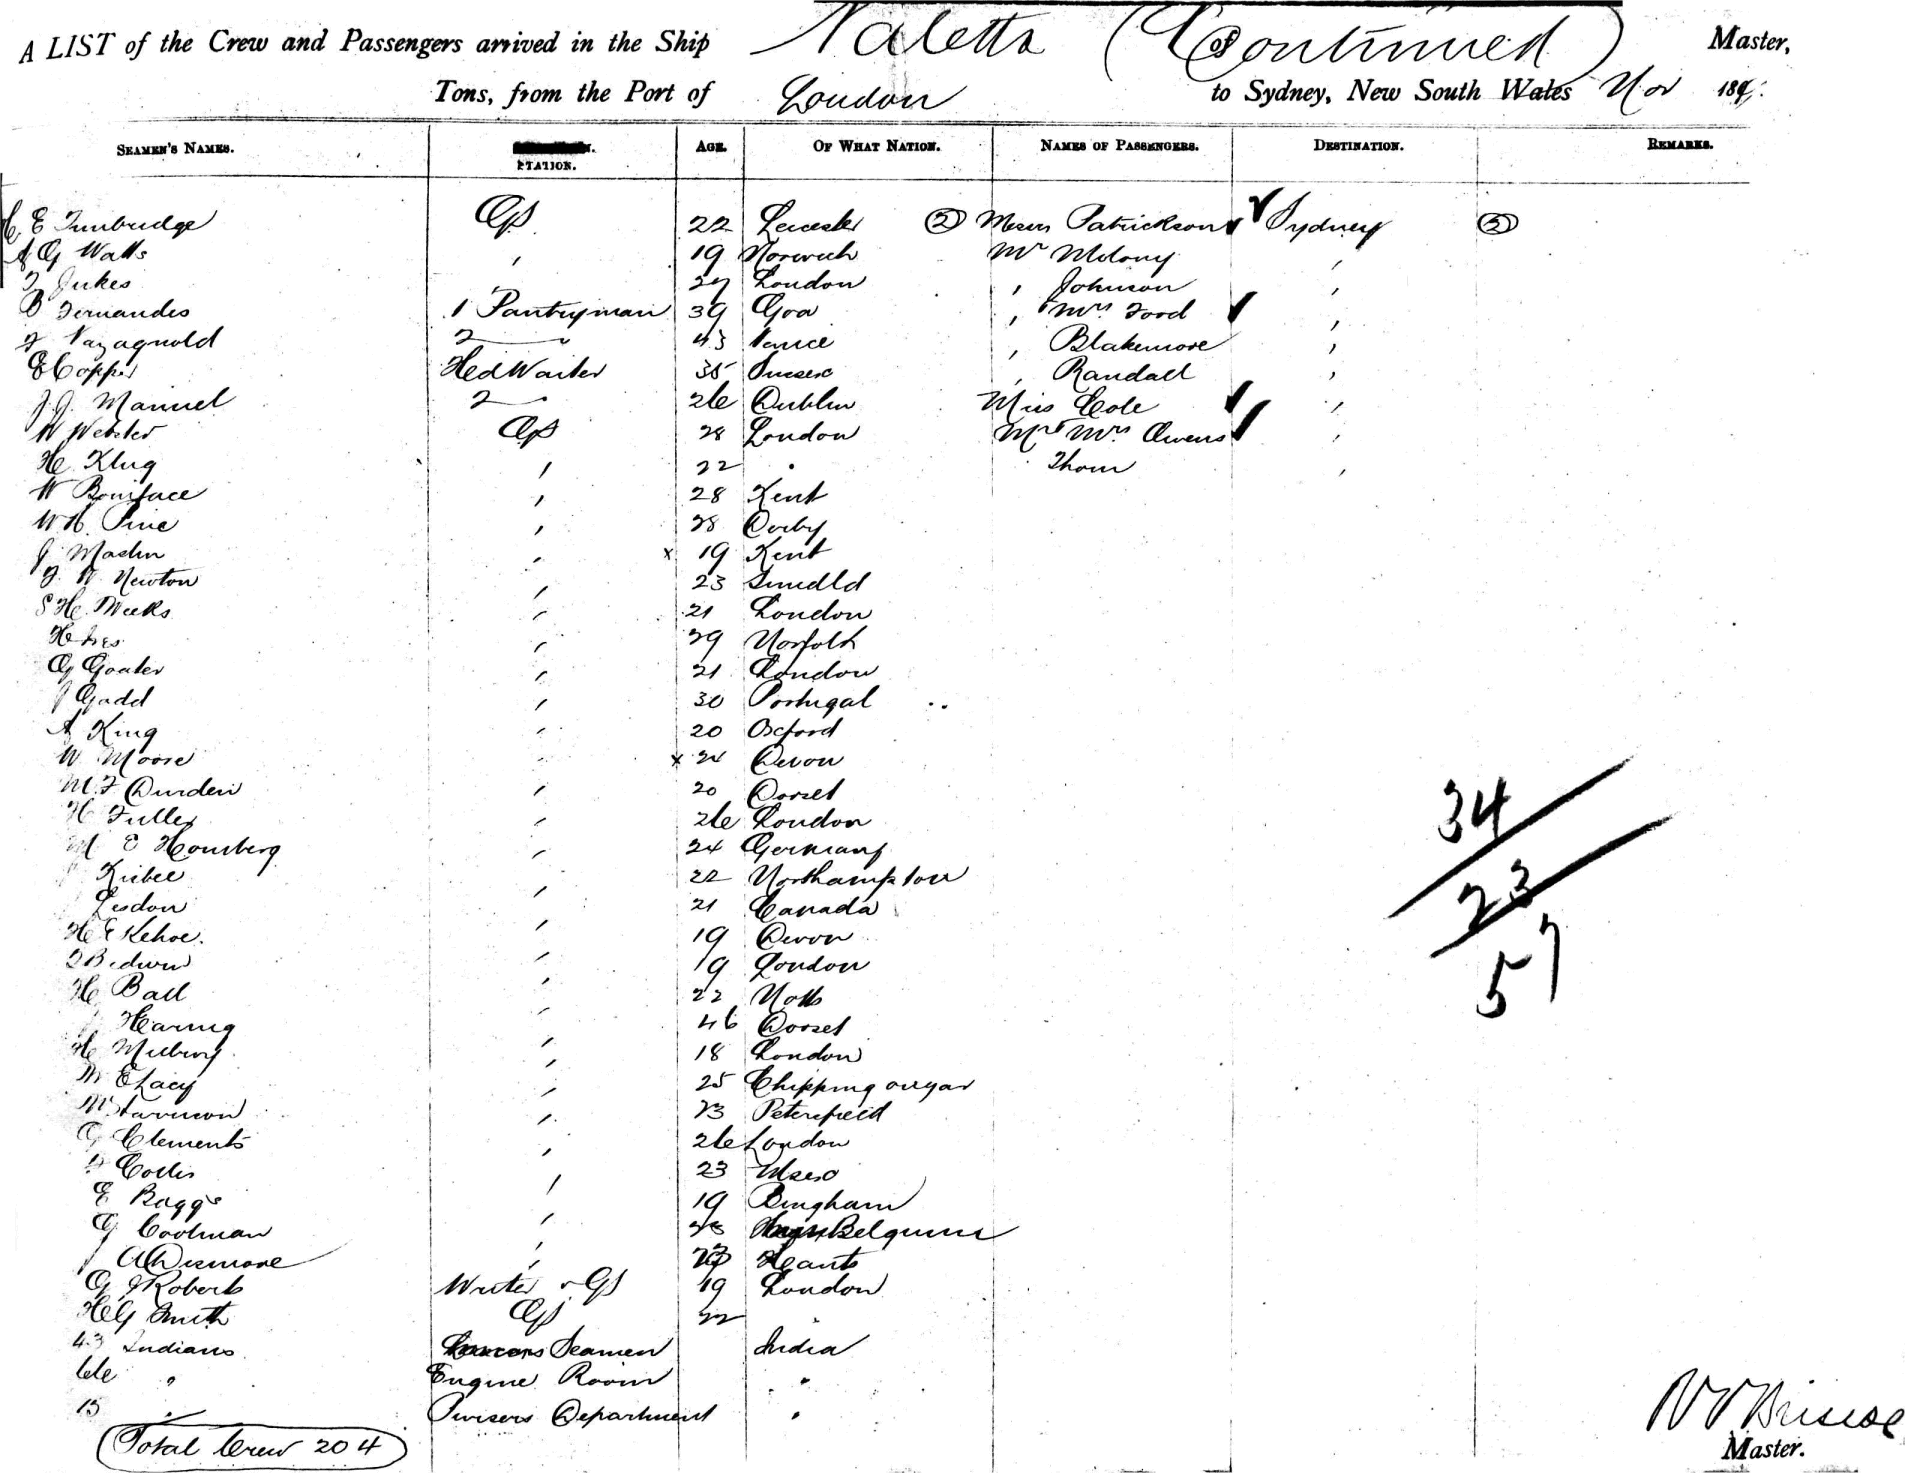 A LIST of the Crew and Passengers arrived in the Ship Valetta (Continued) of Master,
Tons, from the Port of London to Sydney, New South Wales Nov 189
SEAMEN'S NAMES. STATION. AGE. OF WHAT NATION. NAMES OF PASSENGERS. DESTINATION. REMARKS.
H E Tunbridge GS 22 Leicester (2) Messrs Patrickson Sydney (2)
A G Watts " 19 Norwich Mr Molony "
Jukes 27 London " Johnson "
B Fernandes 1 Pantryman 39 Goa " Mrs Ford "
2 " 43 Venice " Blakemore "
E Copper Hed Waiter 35 Sussex " Randall "
J. J. Manuel 2 " 26 Dublin Miss Cole "
W Webster GS 28 London Mr Mrs Owens "
H. Klug " 22 " Thom "
W Boniface " 28 Kent
W H. Pine " 28 Derby
J. Maslin " x 19 Kent
F. W. Newton " 23 Sundld
S H. Meeks " 21 London
H Ives " 29 Norfolk
G Goater " 21 London
J Gadd " 30 Portugal
A King " 20 Oxford
W. Moore " x 24 Devon
M. F Durden " 20 Dorset
H Fuller " 26 London
E Hornberg " 24 Germany
Kirbee " 22 Northampton
Lesdon " 21 Canada
H E Kehoe. " 19 Devon
Bedwin " 19 London
H. Ball " 22 Notts
Hearing " 46 Dorset
H. Milbury " 18 London
E Lacy " 25 Chipping ongar
" 23 Petersfield
G Clements " 26 London
Collis " 23 Essex
E Baggs " 19 Bingham
G Coolman " 28 Belguim
A Dismore " Hants
G J Roberts Writer & GS 19 London
H G Smith GS 22
43 Indians Lascars Seamen India
66 " Engine Room "
15 " Pursers Department "
Total Crew 204
34
23
57
W Briscoe
Master.